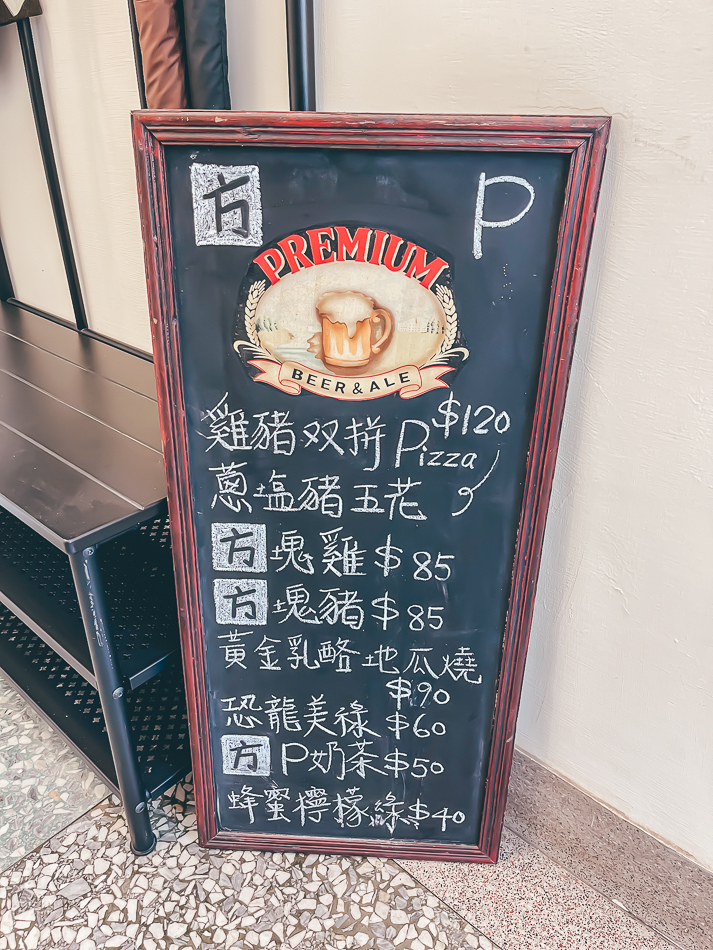 方 P
PREMIUM
BEER & ALE
雞豬双拼Pizza $120
蔥塩豬五花
方塊雞 $85
方塊豬 $85
黃金乳酪地瓜燒
$90
恐龍美祿 $60
方P奶茶 $50
蜂蜜檸檬綠 $40